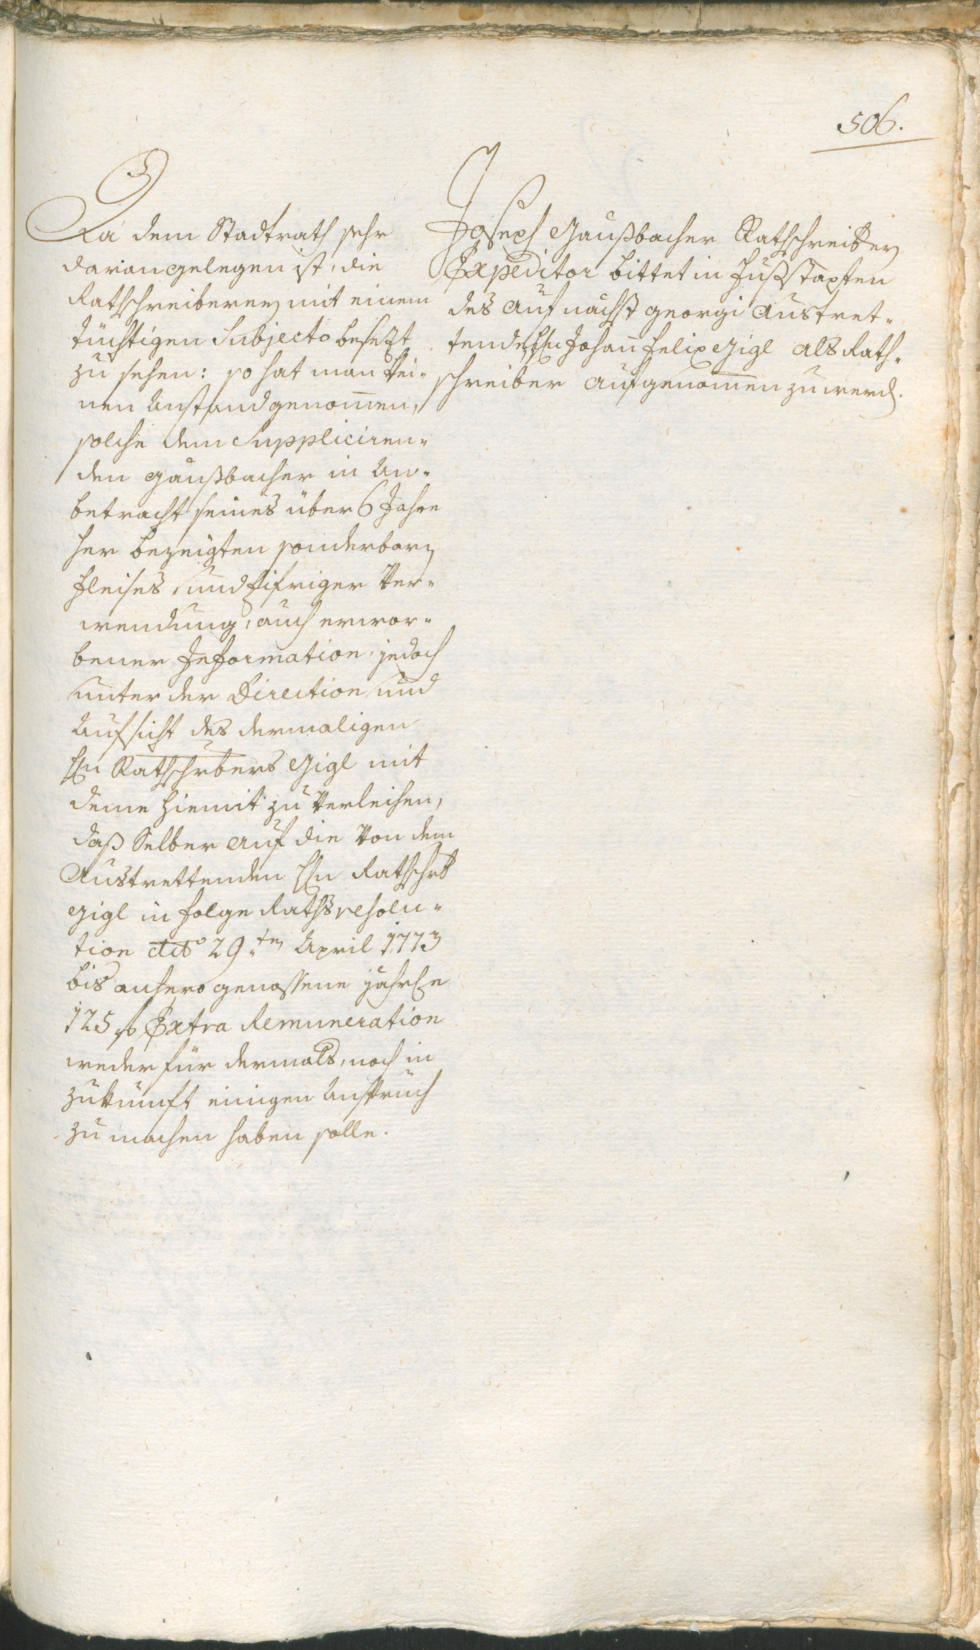 506.
Da dem Stadtrath sehr
daran gelegen ist, die
Rathschreiberey mit einem
tüchtigen Subjecto besezt
zu sehen: so hat man kei-
nen Anstand genom̄en,
solche dem Suppliciren-
den Gaußbacher in An-
betracht seines über 6 Jahre
her bezeigten sonderbarn
Fleises, und Eifriger Ver-
wendung, auch erwor-
bener Information, jedoch
unter der Direction und
Aufsicht des dermaligen
Hn Rathschrbers Gigl mit
deme hiemit zu verleihen,
daß Selber auf die von dem
Austrettenden Hn Rathschrb
Gigl in folge Rathsresolu-
tion ddto 29.ten April 1773
bis anhero genossene jährle
125 f Extra Remuneration
weder für dermals, noch in
Zukunft einigen Anspruch
zu machen haben solle.
Joseph Gaußbacher Rathschreiberey
Expeditor bittet in Fußstapfen
des auf nächst Georgi austret-
tenden Hn Johan̄ Felix Gigl als Rath-
schreiber aufgenom̄en zu werd.